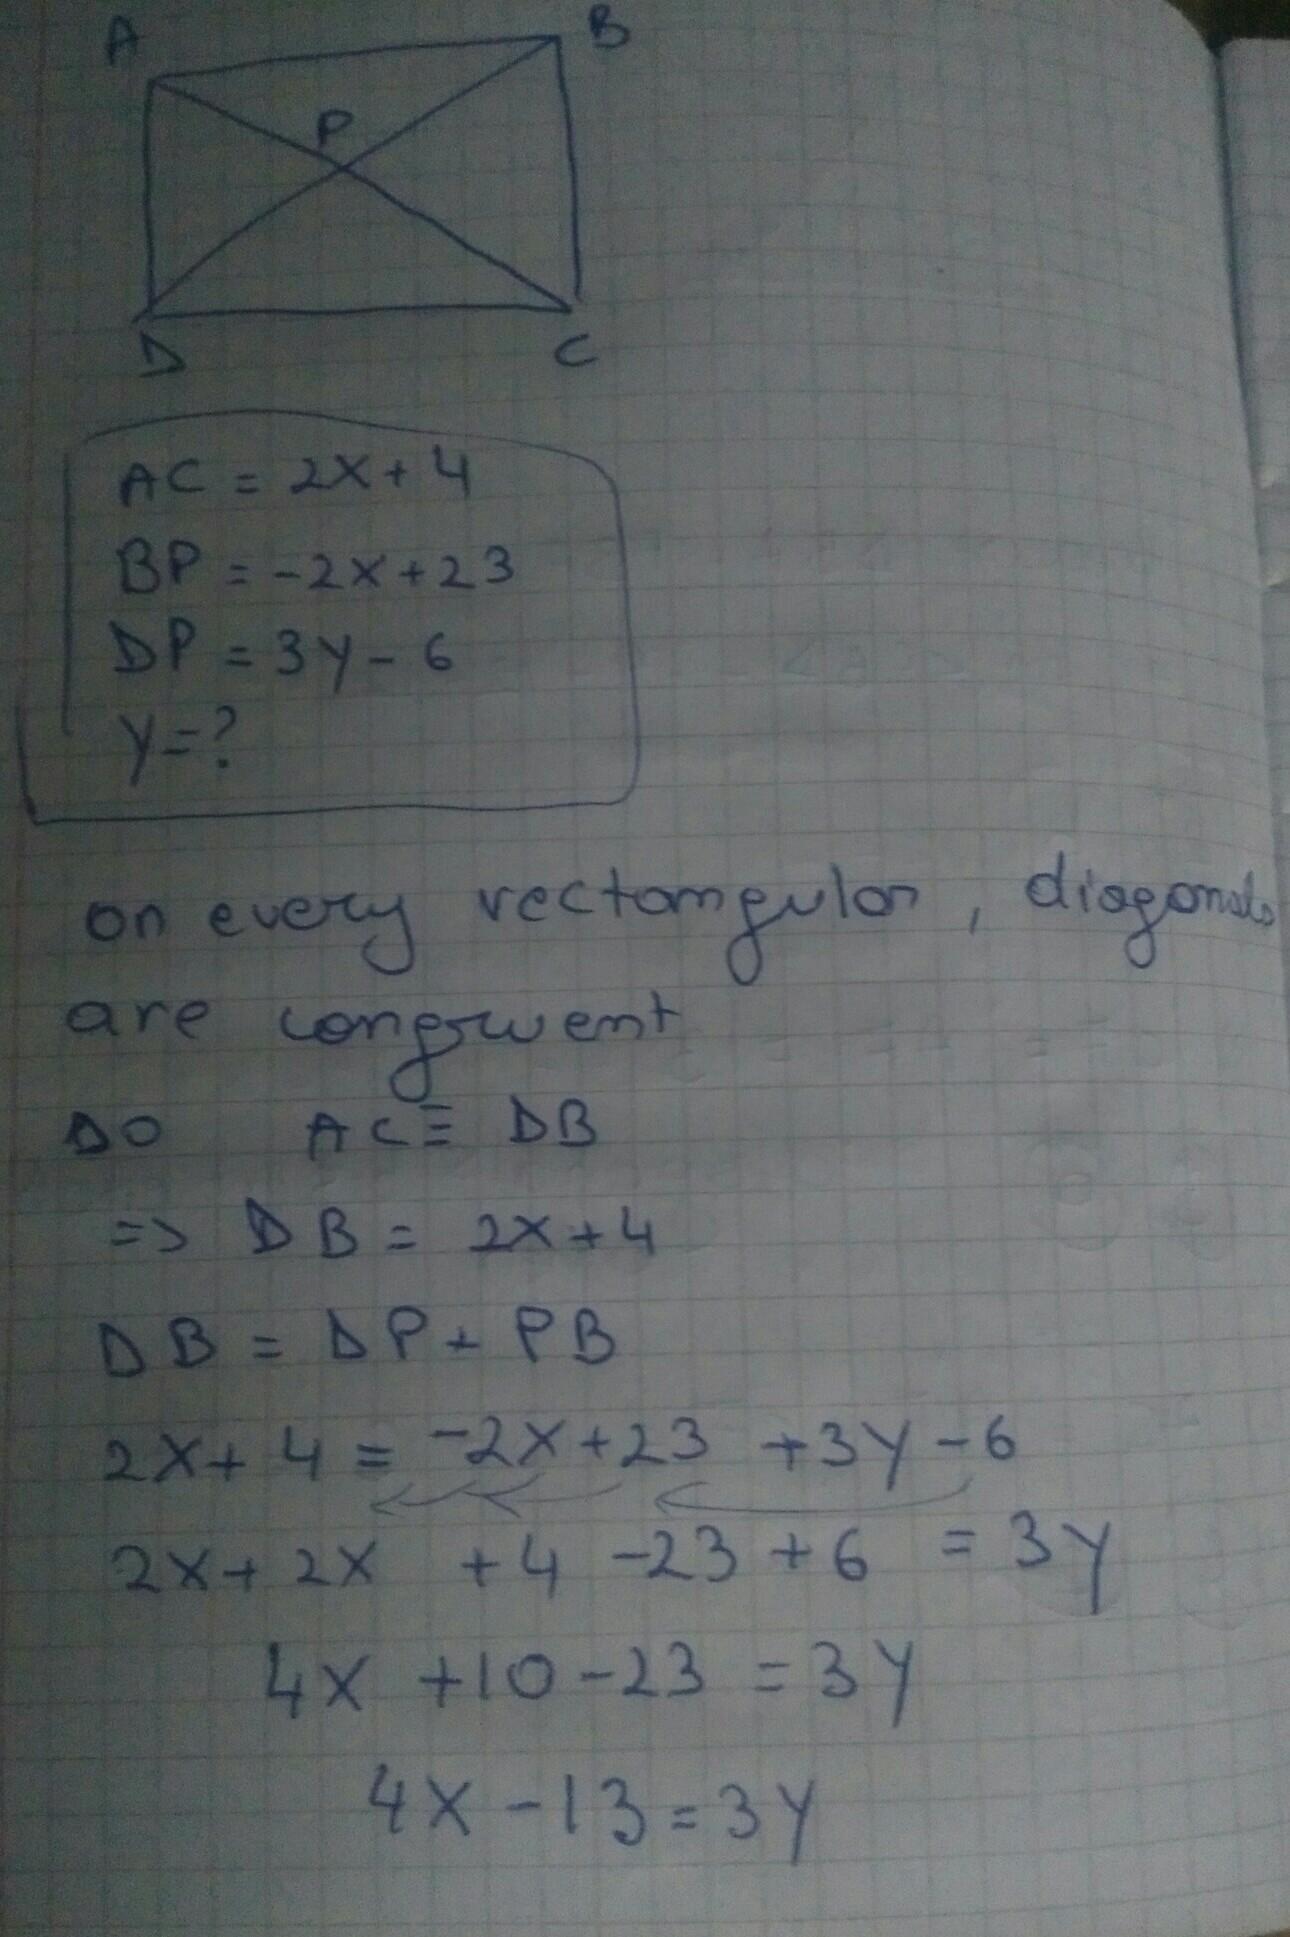 A
B
P
D
C
AC = 2x + 4
BP = -2x + 23
DP = 3y - 6
y = ?
on every rectangular, diagonals
are congruent
so AC ≡ DB
=> DB = 2x + 4
DB = DP + PB
2x + 4 = -2x + 23 + 3y - 6
2x + 2x + 4 - 23 + 6 = 3y
4x + 10 - 23 = 3y
4x - 13 = 3y